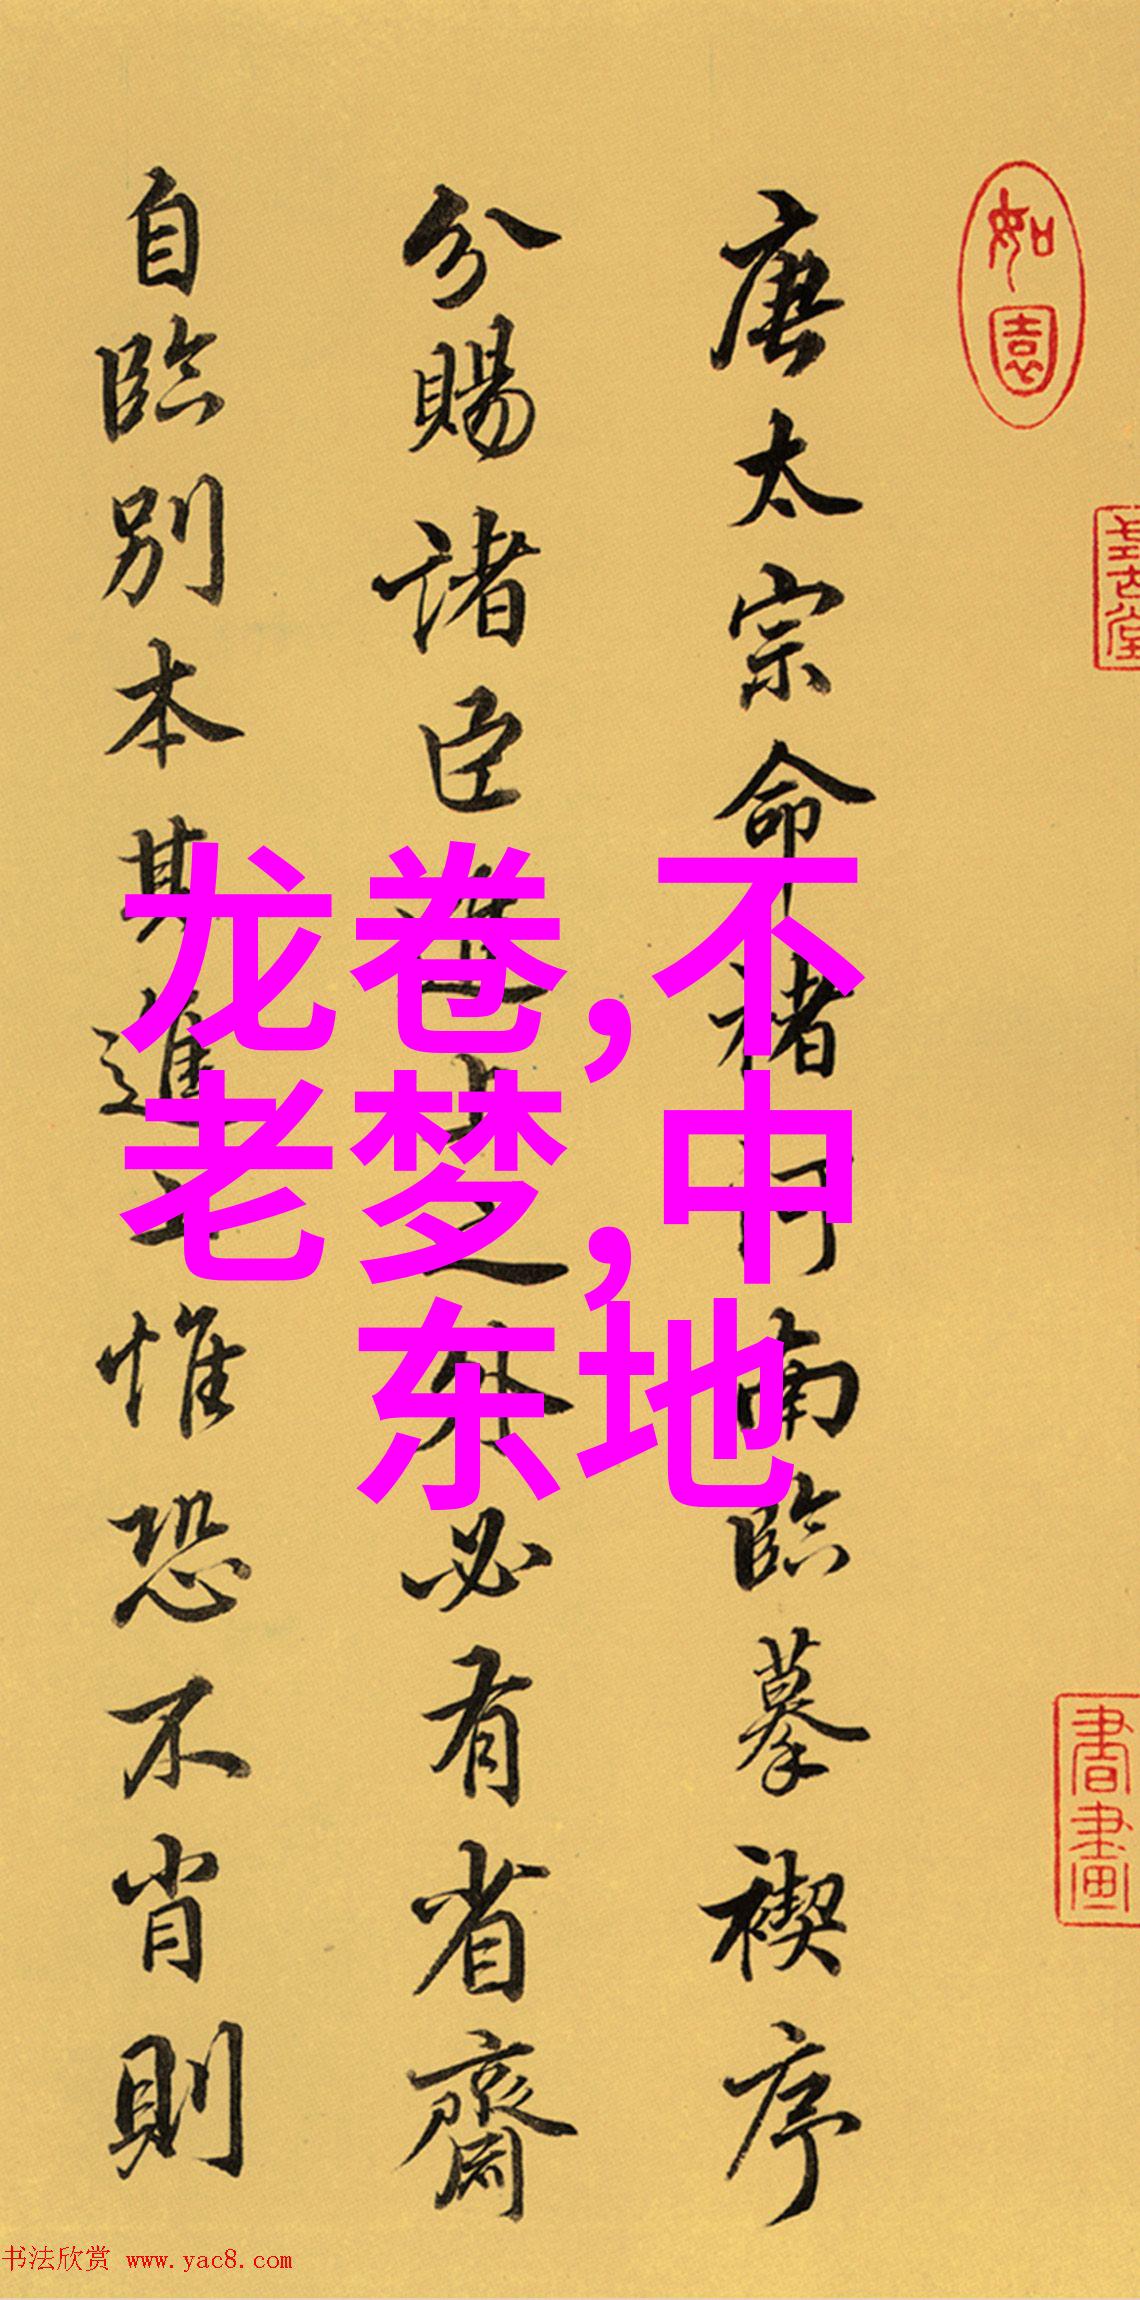 如園
書畫
唐太宗命褚河南臨摹禊序
分賜諸臣進之外必有省齋
自臨別本其進上惟恐不肖則
龙卷,不
老梦,中
东地
书法欣赏 www.yac8.com